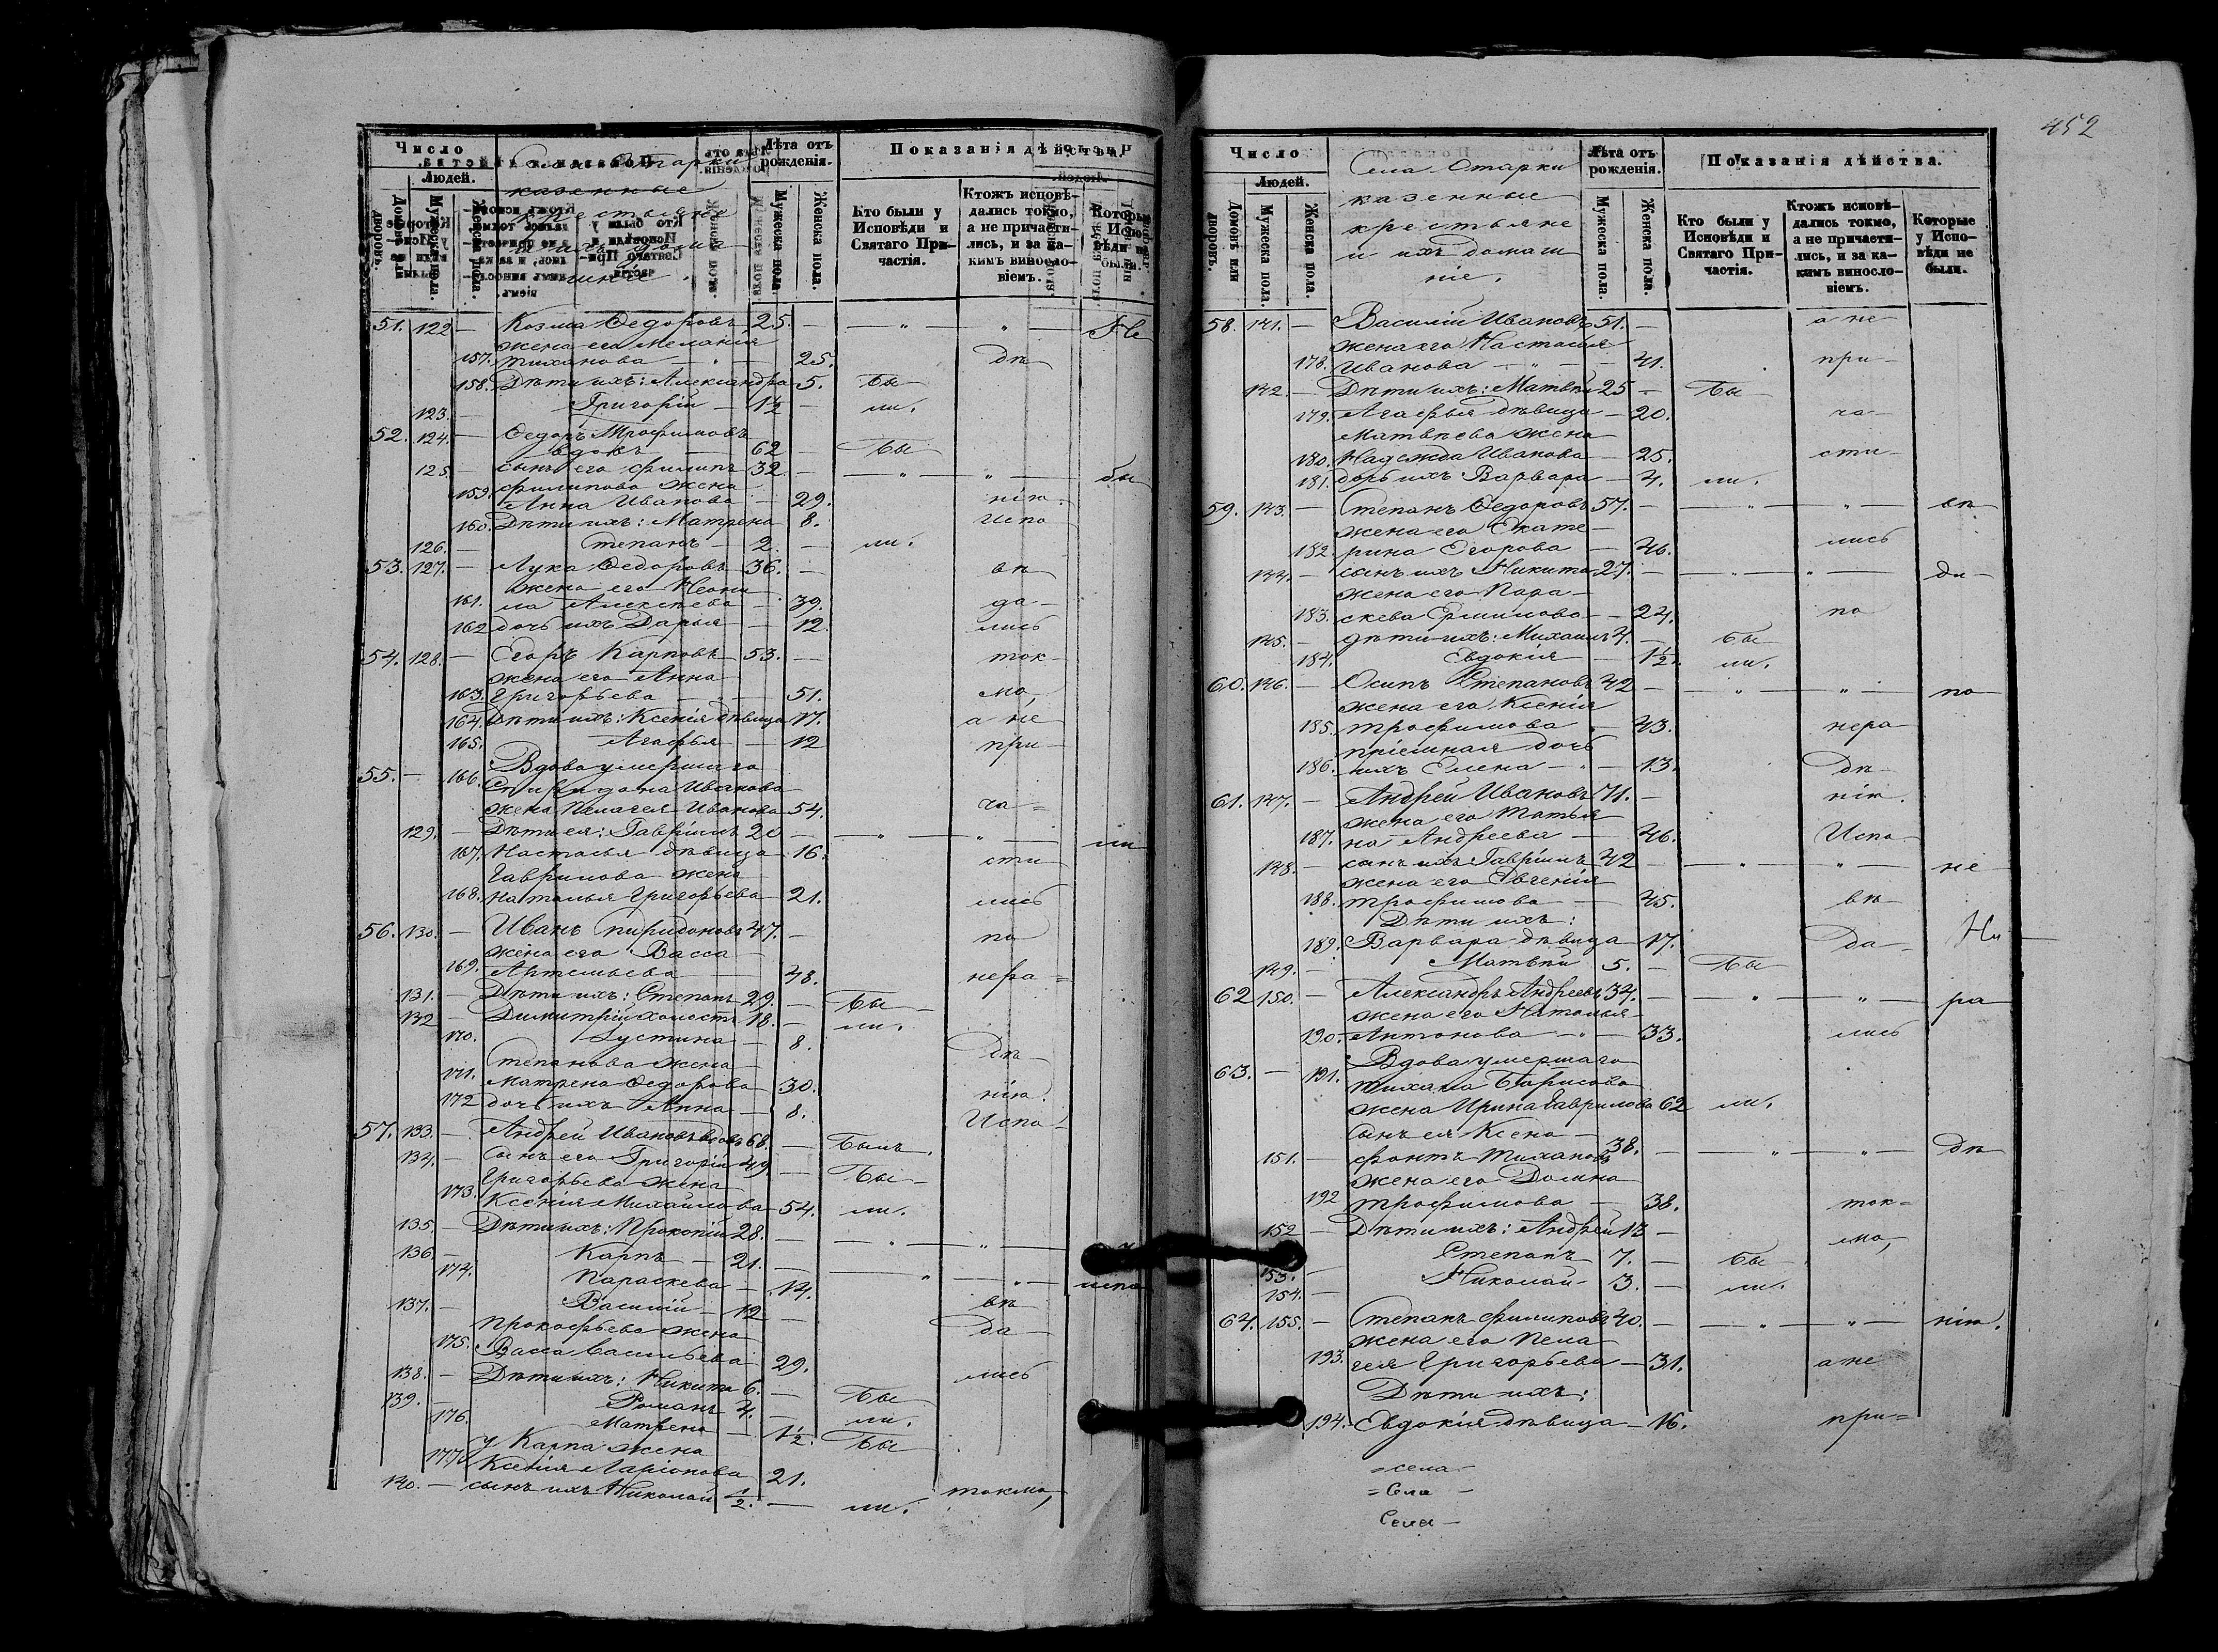 Число
Людей.
Домовъ или дворовъ.
Мужеска пола.
Женска пола.
Села Старки
казенные
крестьяне
и ихъ дома
шніе.
Лѣта отъ рожденія.
Мужеска пола.
Женска пола.
Показанія дѣйства.
Кто были у Исповѣди и Святаго При-частія.
Ктожъ исповѣ-дались токмо, а не причасти-лись, и за ка-кимъ винословіемъ.
Которые у Испо-вѣди не были.
51. 122 — Козма Ѳедоровъ 25. — — „ — „ — Не
жена его Меланія
157. Тиханова — „ — 25. дѣ
158. Дѣти ихъ: Александра 5. Бы
123. — Григорій — 1½ — ли.
52. 124. — Ѳедоръ Трофимовъ
вдовъ — 62 — Бы
125 — сынъ его Филипъ 32 — „ — „ — бы
Филипова жена
159. Анна Иванова — 29. нію.
160. Дѣти ихъ: Матрена 8. Испо
126. — Степанъ — 2. — ли.
53. 127. — Лука Ѳедоровъ 36. — вѣ
жена его Неони
161. ла Алексѣева — 39. да—
162 дочь ихъ Дарья — 12. лись
54. 128. — Егоръ Карповъ 53. — ток—
жена его Анна
163. Григорьева — „ — 51. мо,
164. Дѣти ихъ: Ксенія дѣвица 17. а не
165. Агафья — 12 при—
55. — 166. Вдова умершаго
Спиридона Иванова
жена Пелагея Иванова 54. ча=
129. — Дѣти ея: Гавріилъ 20 — — „ — „ — ли
167. Настасья дѣвица — 16. сти
Гаврилова жена
168. Наталья Григорьева 21. лись
56. 130. — Иванъ Спиридоновъ 47. — по
жена его Васса
169. Артемьева — 48. нера=
131. — Дѣти ихъ: Степанъ 29. — Бы
132 — Димитрій холостъ 18. — ли.
170. Іустина — 8.
Степанова жена дѣ—
171. Матрена Ѳедорова 30.
172 дочь ихъ Анна — 8. нію.
57. 133. — Андрей Ивановъ вдовъ 68. — Былъ. Испо=
134. — Сынъ его Григорій 49 — Бы—
Григорьева жена
173. Ксенія Михайлова 54. ли.
135. — Дѣти ихъ: Прокопій 28. — — „ — „ —
136 — Карпъ — 21. — — „ — „ — испо
174. Параскева — 14.
137. — Василій — 12 — вѣ
Прокофьева жена да
175. Васса Савельева 29.
138. — Дѣти ихъ: Никита 6. — лись
139. Романъ 4. — Бы
176. Матрена — 1½. ли.
у Карпа жена Бы
177. Ксенія Ларіонова 21.
140. — сынъ ихъ Николай ½. — ли. токмо,
452
Число
Людей.
Домовъ или дворовъ.
Мужеска пола.
Женска пола.
Села Старки
казенные
крестьяне
и ихъ домаш
ніе.
Лѣта отъ рожденія.
Мужеска пола.
Женска пола.
Показанія дѣйства.
Кто были у Исповѣди и Святаго При-частія.
Ктожъ исповѣ-дались токмо, а не причасти-лись, и за ка-кимъ винословіемъ.
Которые у Испо-вѣди не были.
58. 141. — Василій Ивановъ 51. — а не
жена его Настасья
178. Иванова — „ — 41. при—
142 — Дѣти ихъ: Матвѣй 25 — Бы
179. Агафья дѣвица — 20. ча—
Матвѣева жена
180. Надежда Иванова — 25. сти—
181. дочь ихъ Варвара — 4. ли.
59. 143. — Степанъ Ѳедоровъ 57. — — „ — „ — вѣ
жена его Екате—
182. рина Егорова — 46. лись
144. — сынъ ихъ Никита 27. — — „ — „ — ди—
жена его Пара—
183. скева Ермилова — 24. по
145. — дѣти ихъ: Михаилъ 4. — Бы
184. Евдокія — 1½. ли.
60. 146. — Осипъ Степановъ 42 — — „ — „ — по
жена его Ксенія
185. Трофимова — 43. нера
пріемная дочь
186. ихъ Елена — „ — 13. дѣ—
61. 147. — Андрей Ивановъ 71. — нію.
жена его Татья
187. на Андреева — 46. Испо—
148. — сынъ ихъ Гавріилъ 42 — — „ — „ — не
жена его Евгенія
188. Трофимова — 45. вѣ—
Дѣти ихъ:
189. Варвара дѣвица 17. да—
149. — Матвѣй 5. — Бы
62 150. — Александръ Андреевъ 34. — — „ — „ — ра
жена его Наталья
190. Антонова — „ — 33. лись
63. — 191. Вдова умершаго
Тихана Борисова
жена Ирина Гаврилова 62 ли.
Сынъ ея Ксено—
151. — фонтъ Тихановъ 38. — — „ — „ — дѣ
жена его Домна
192 Трофимова — 38. ток=
152 — Дѣти ихъ: Андрей 13 — мо,
153. — Степанъ — 7. — Бы
154. — Николай — 3. — ли.
64. 155. — Степанъ Филиповъ 40. — — „ — „ — нію.
жена его Пела
193. гея Григорьева — 31. а не
Дѣти ихъ:
194. Евдокія дѣвица — 16. при=
= села —
= Села —
Села —